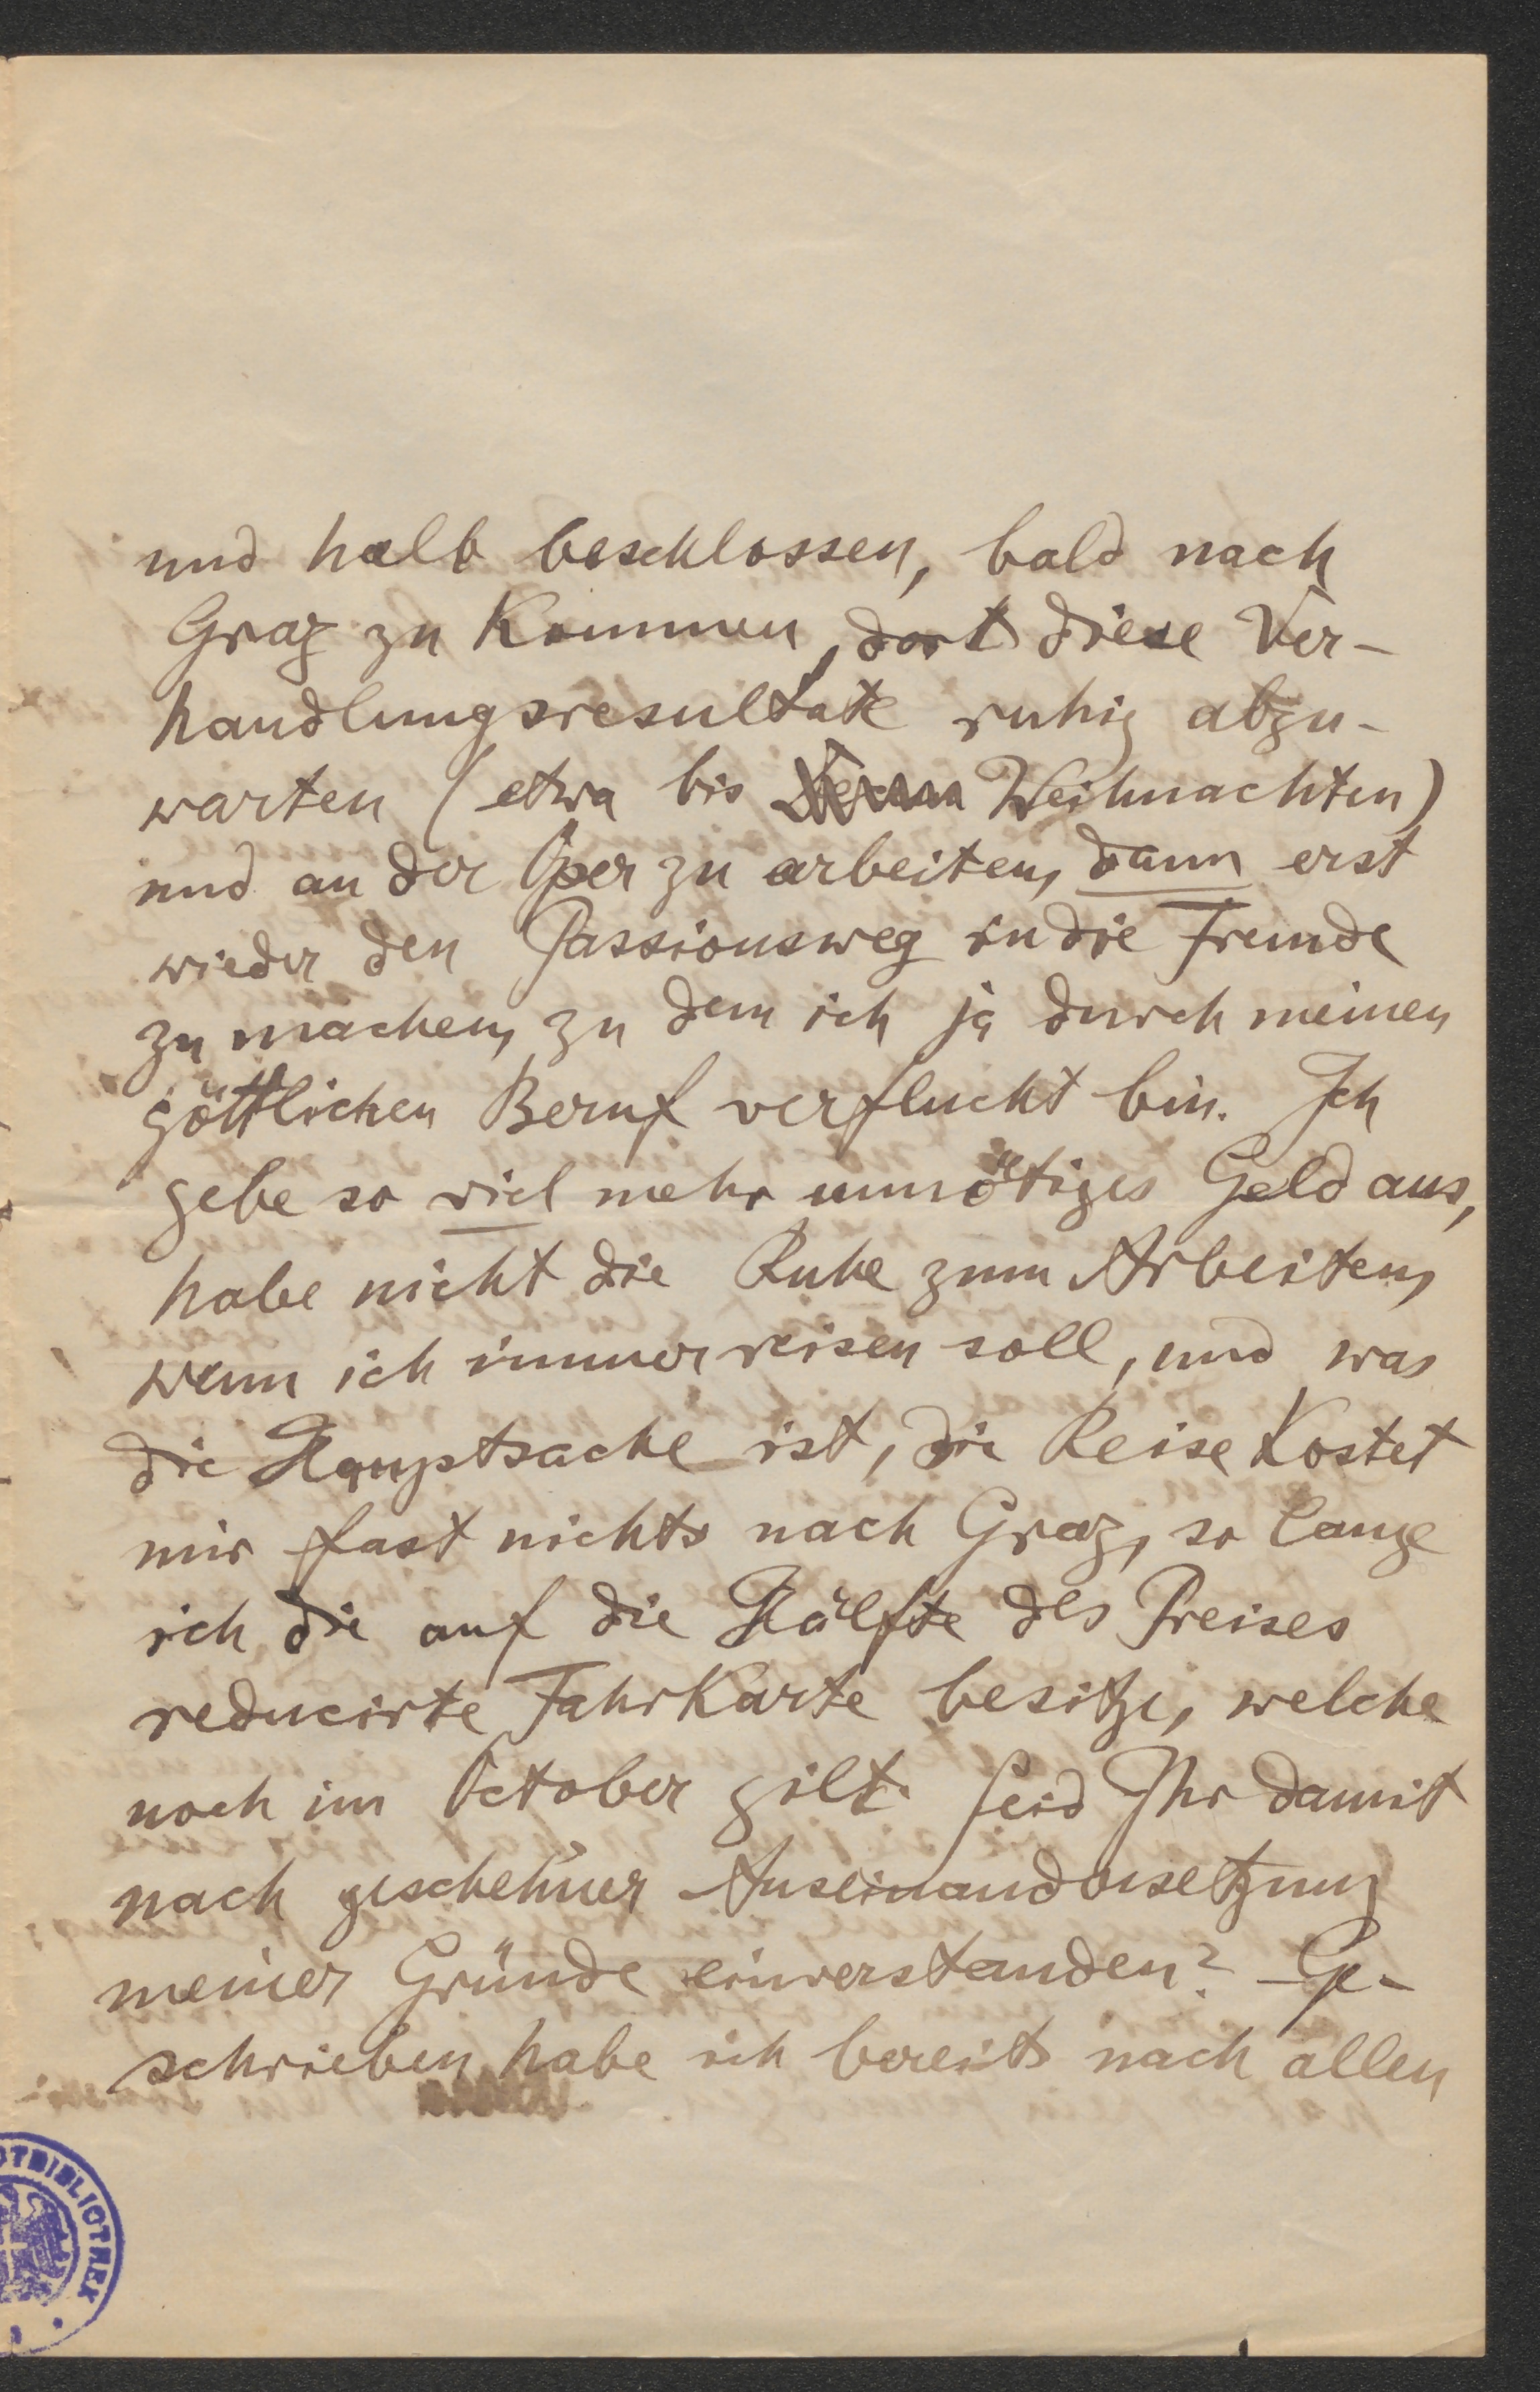 und halb beschlossen, bald nach
Graz zu Kommen, dort diese Ver-
handlungsresultate ruhig abzu-
warten (etwa bis Weihnachten)
und an der Oper zu arbeiten, dann erst
wieder den Passionsweg in die Fremde
zu machen, zu dem ich ja durch meinen
göttlichen Beruf verflucht bin. Ich
gebe so viel mehr unnötiges Geld aus,
habe nicht die Ruhe zum Arbeiten,
wenn ich immer reisen soll, und was
die Hauptsache ist, die Reise Kostet
mir fast nichts nach Graz, so lange
ich die auf die Hälfte des Preises
reducirte FahrKarte besitze, welche
noch im October gilt. Seid Ihr damit
nach geschehner Auseinandersetzung
meiner Gründe einverstanden? Ge-
schrieben habe ich bereits nach allen
OTBIBLIOTHEK